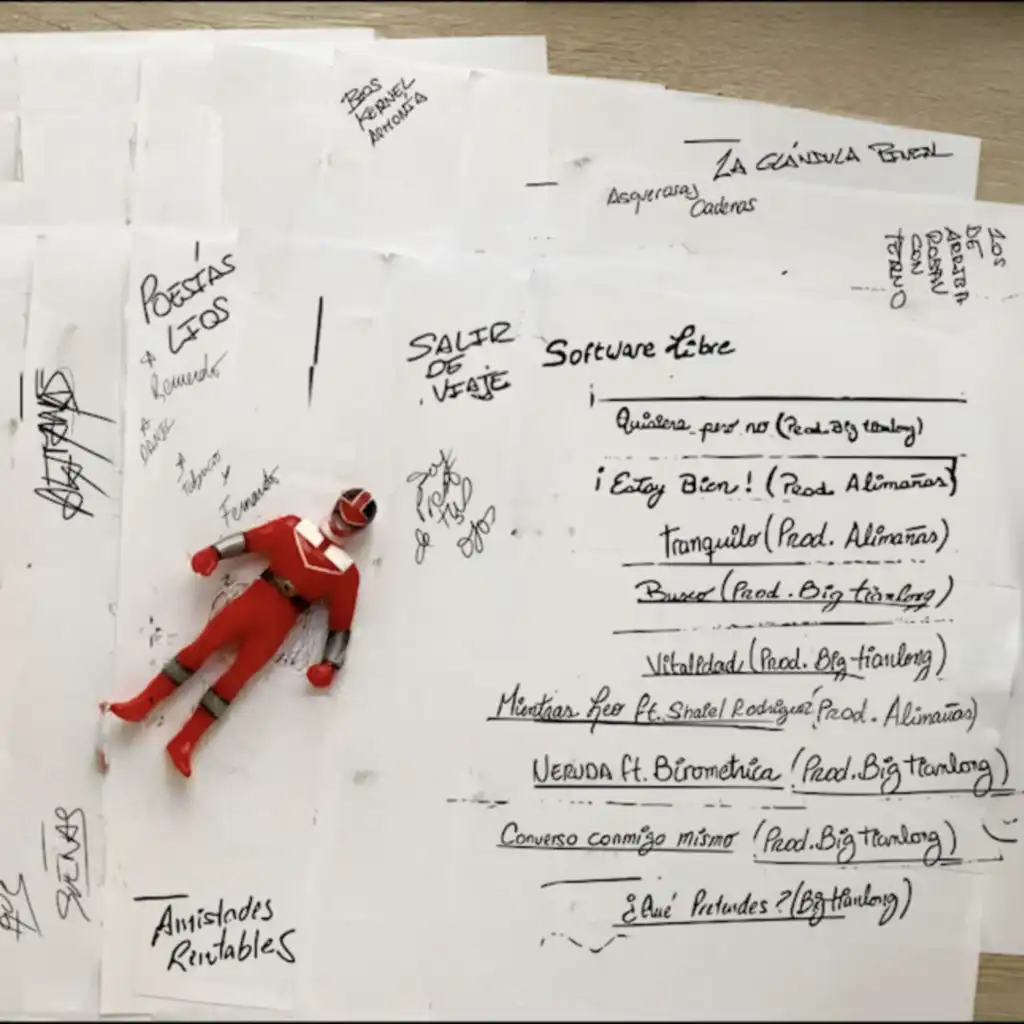 BIOS
KERNEL
ARMONÍA
LA GLÁNDULA PINEAL
Asquerosas
Cadenas
LOS
DE
ARRIBA
ROBAN
CON
TERNO
POESÍAS
LIOS
A
Remundo
A
DANIL
A
Tabucos
y
Fernando
SALIR
DE
VIAJE
Software Libre
Quisiera pero no (Prod. Big tianlong)
¡Estoy Bien! (Prod Alimañas)
tranquilo (Prod. Alimañas)
Busco (Prod. Big tianlong)
Vitalidad (Prod. Big tianlong)
Mientras Leo ft. Shaiel Rodríguez (Prod. Alimañas)
NERUDA ft. Birometrica (Prod. Big tianlong)
Converso conmigo mismo (Prod. Big tianlong)
¿Qué Pretendes? (Big tianlong)
SUEÑAS
Amistades
Rentables